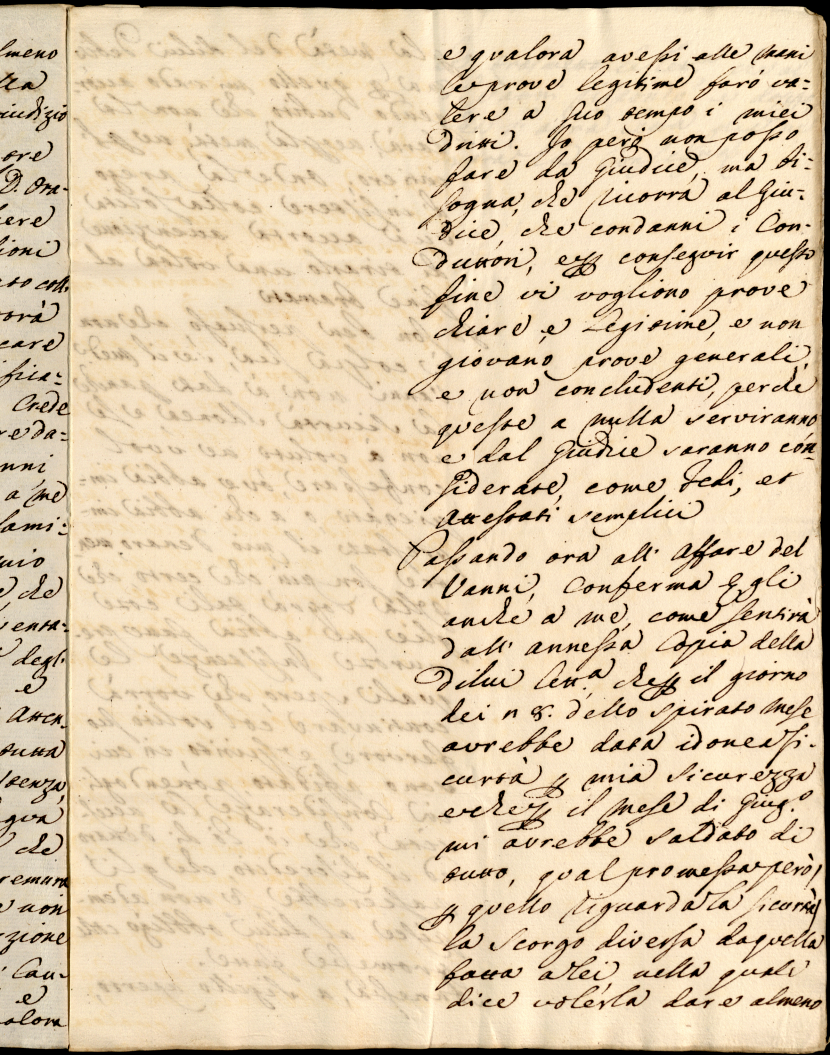 lmeno
tta
iudizio
ore
D. Ora-
ere
ioni
orà
care
fica=
Crede
re da=
nni
a me
lami=
e che
venta=
degl'
e
Atten
tutta
denza,
che
remura
e non
zione
Cau-
e
alora
e qualora avessi alle mani
le prove legitime farò va=
lere a suo tempo i miei
dritti. Io però non posso
fare da Giudice, ma bi=
sogna, che ricorra al Giu=
dice, che condanni i Con-
duttori, e p conseguir questo
fine vi vogliono prove
chiare, e Legitime, e non
giovano prove generali,
e non concludenti, perchè
queste a nulla serviranno
e dal Giudice saranno con
siderate, come Fedi, et
attestati semplici
Passando ora all' Affare del
Vanni, Conferma Egli
anche a me, come sentirà
dall' annessa Copia della
dilui Lett.a, che p il giorno
dei n 8. dello spirato Mese
avrebbe data idonea Si-
curtà p mia Sicurezza
e che p il Mese di Giug.o
mi avrebbe saldato di
tutto, qual promessa però,
p quello riguarda la Sicurtà,
la Scorgo diversa da quella
fatta a Lei nella quale
dice volerla dare almeno